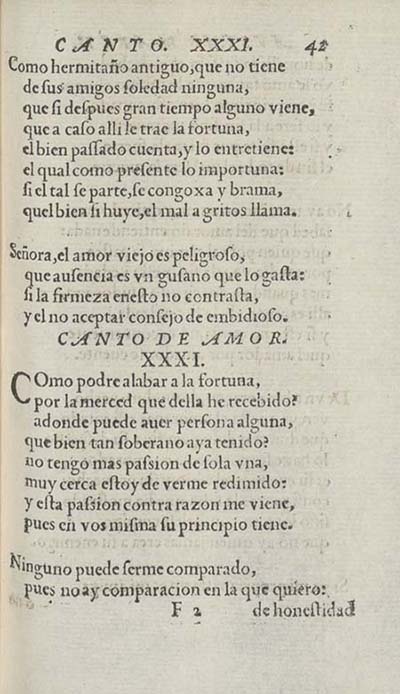 CANTO. XXXI. 42
Como hermitaño antiguo, que no tiene
de sus amigos soledad ninguna,
que si despues gran tiempo alguno viene,
que a caso alli le trae la fortuna,
el bien passado cuenta, y lo entretiene:
el qual como presente lo importuna:
si el tal se parte, se congoxa y brama,
quel bien si huye, el mal a gritos llama.
Señora, el amor viejo es peligroso,
que ausencia es vn gusano que lo gasta:
si la firmeza enesto no contrasta,
y el no aceptar consejo de embidioso.
CANTO DE AMOR.
XXXI.
COmo podre alabar a la fortuna,
por la merced que della he recebido?
adonde puede auer persona alguna,
que bien tan soberano aya tenido?
no tengo mas passion de sola vna,
muy cerca estoy de verme redimido:
y esta passion contra razon me viene,
pues en vos misma su principio tiene.
Ninguno puede serme comparado,
pues no ay comparacion en la que quiero:
F 2 de honestidad